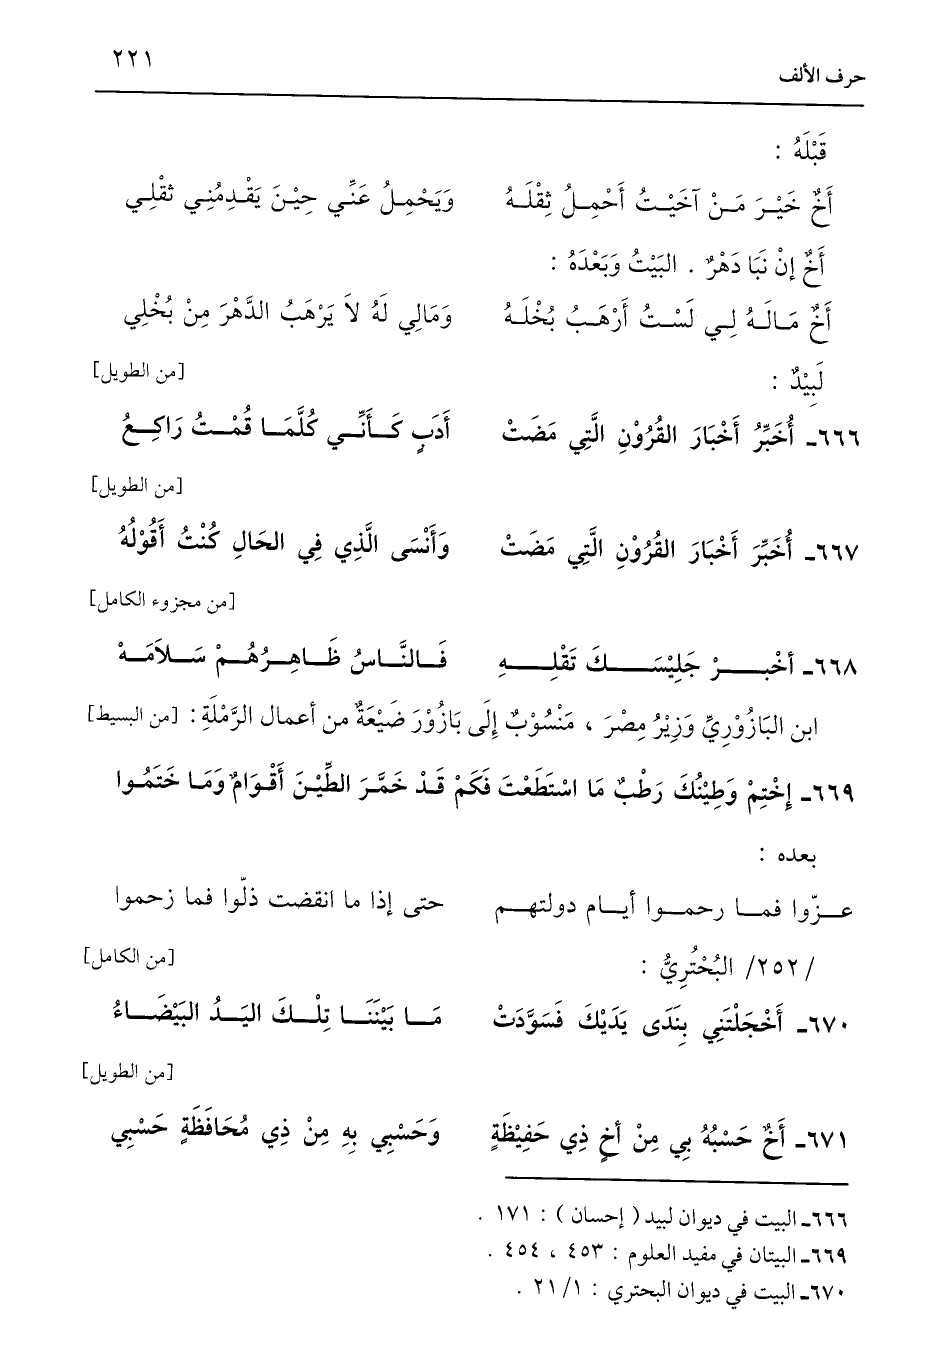 حرف الألف ٢٢١
قَبْلَهُ :
أَخٌ خَيْرَ مَنْ آخَيْتُ أَحْمِلُ ثِقْلَهُ وَيَحْمِلُ عَنِّي حِيْنَ يَقْدِمُنِي ثقْلِي
أَخٌ إنْ نَبَا دَهْرٌ . البَيْتُ وَبَعْدَهُ :
أَخٌ مَالَهُ لِي لَسْتُ أَرْهَبُ بُخْلَهُ وَمَالِي لَهُ لاَ يَرْهَبُ الدَّهْرَ مِنْ بُخْلِي
لَبِيْدٌ : [من الطويل]
٦٦٦ـ أُخَبِّرُ أَخْبَارَ القُرُوْنِ الَّتِي مَضَتْ أَدَبٍ كَأَنِّي كُلَّمَا قُمْتُ رَاكِعُ
[من الطويل]
٦٦٧ـ أُخَبِّرَ أَخْبَارَ القُرُوْنِ الَّتِي مَضَتْ وَأَنْسَى الَّذِي فِي الحَالِ كُنْتُ أَقُوْلُهُ
[من مجزوء الكامل]
٦٦٨ـ أخْبرْ جَلِيْسَكَ تَقْلِهِ فَالنَّاسُ ظَاهِرُهُمْ سَلاَمَهْ
ابن البَازُوْرِيِّ وَزِيْرُ مِصْرَ ، مَنْسُوْبٌ إِلَى بَازُوْرَ ضَيْعَةٌ من أعمال الرَّمْلَةِ : [من البسيط]
٦٦٩ـ إِخْتِمْ وَطِيْنُكَ رَطْبٌ مَا اسْتَطَعْتَ فَكَمْ قَدْ خَمَّرَ الطِّيْنَ أَقْوَامٌ وَمَا خَتَمُوا
بعده :
عزّوا فما رحموا أيام دولتهم حتى إذا ما انقضت ذلّوا فما زحموا
/ ٢٥٢/ البُحْتُرِيُّ : [من الكامل]
٦٧٠ـ أَخْجَلْتَنِي بِنَدَى يَدَيْكَ فَسَوَّدَتْ مَا بَيْنَنَا تِلْكَ اليَدُ البَيْضَاءُ
[من الطويل]
٦٧١ـ أَخٌ حَسْبُهُ بي مِنْ أخٍ ذِي حَفِيْظَةٍ وَحَسْبِي بِهِ مِنْ ذِي مُحَافَظَةٍ حَسْبِي
٦٦٦ـ البيت في ديوان لبيد ( إحسان ) : ١٧١ .
٦٦٩ـ البيتان في مفيد العلوم : ٤٥٣ ، ٤٥٤ .
٦٧٠ـ البيت في ديوان البحتري : ٢١/١ .